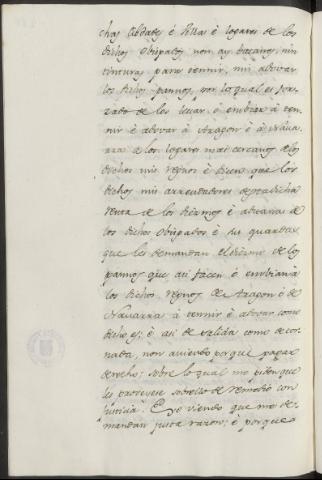 chas Cibdades é Villas é logares de los
dichos Obispados, non ay batanes, nin
tinturas para tennir, nin adovar
los dichos pannos, por lo qual es for-
zado de les levar, ó embiar á ten-
nir é adovar á Aragon é á Nava-
rra á los logares mas cercanos de los
dichos mis regnos é dicen que los
dichos mis arrendadores desta dicha
renta de los diezmos é aduana de
los dichos Obispados é sus guardas
que les demandan el diezmo de los
pannos que asi facen é embian á
los dichos regnos de Aragon é de
Navarra á tennir é adovar como
dicho es, é asi de salida como de tor-
nada, non aviendo porque pagar
derecho; sobre lo qual me pidieron que
les proveyese sobrello de remedio con
justicia. E yo viendo que me de-
mandan justa razon; é porque